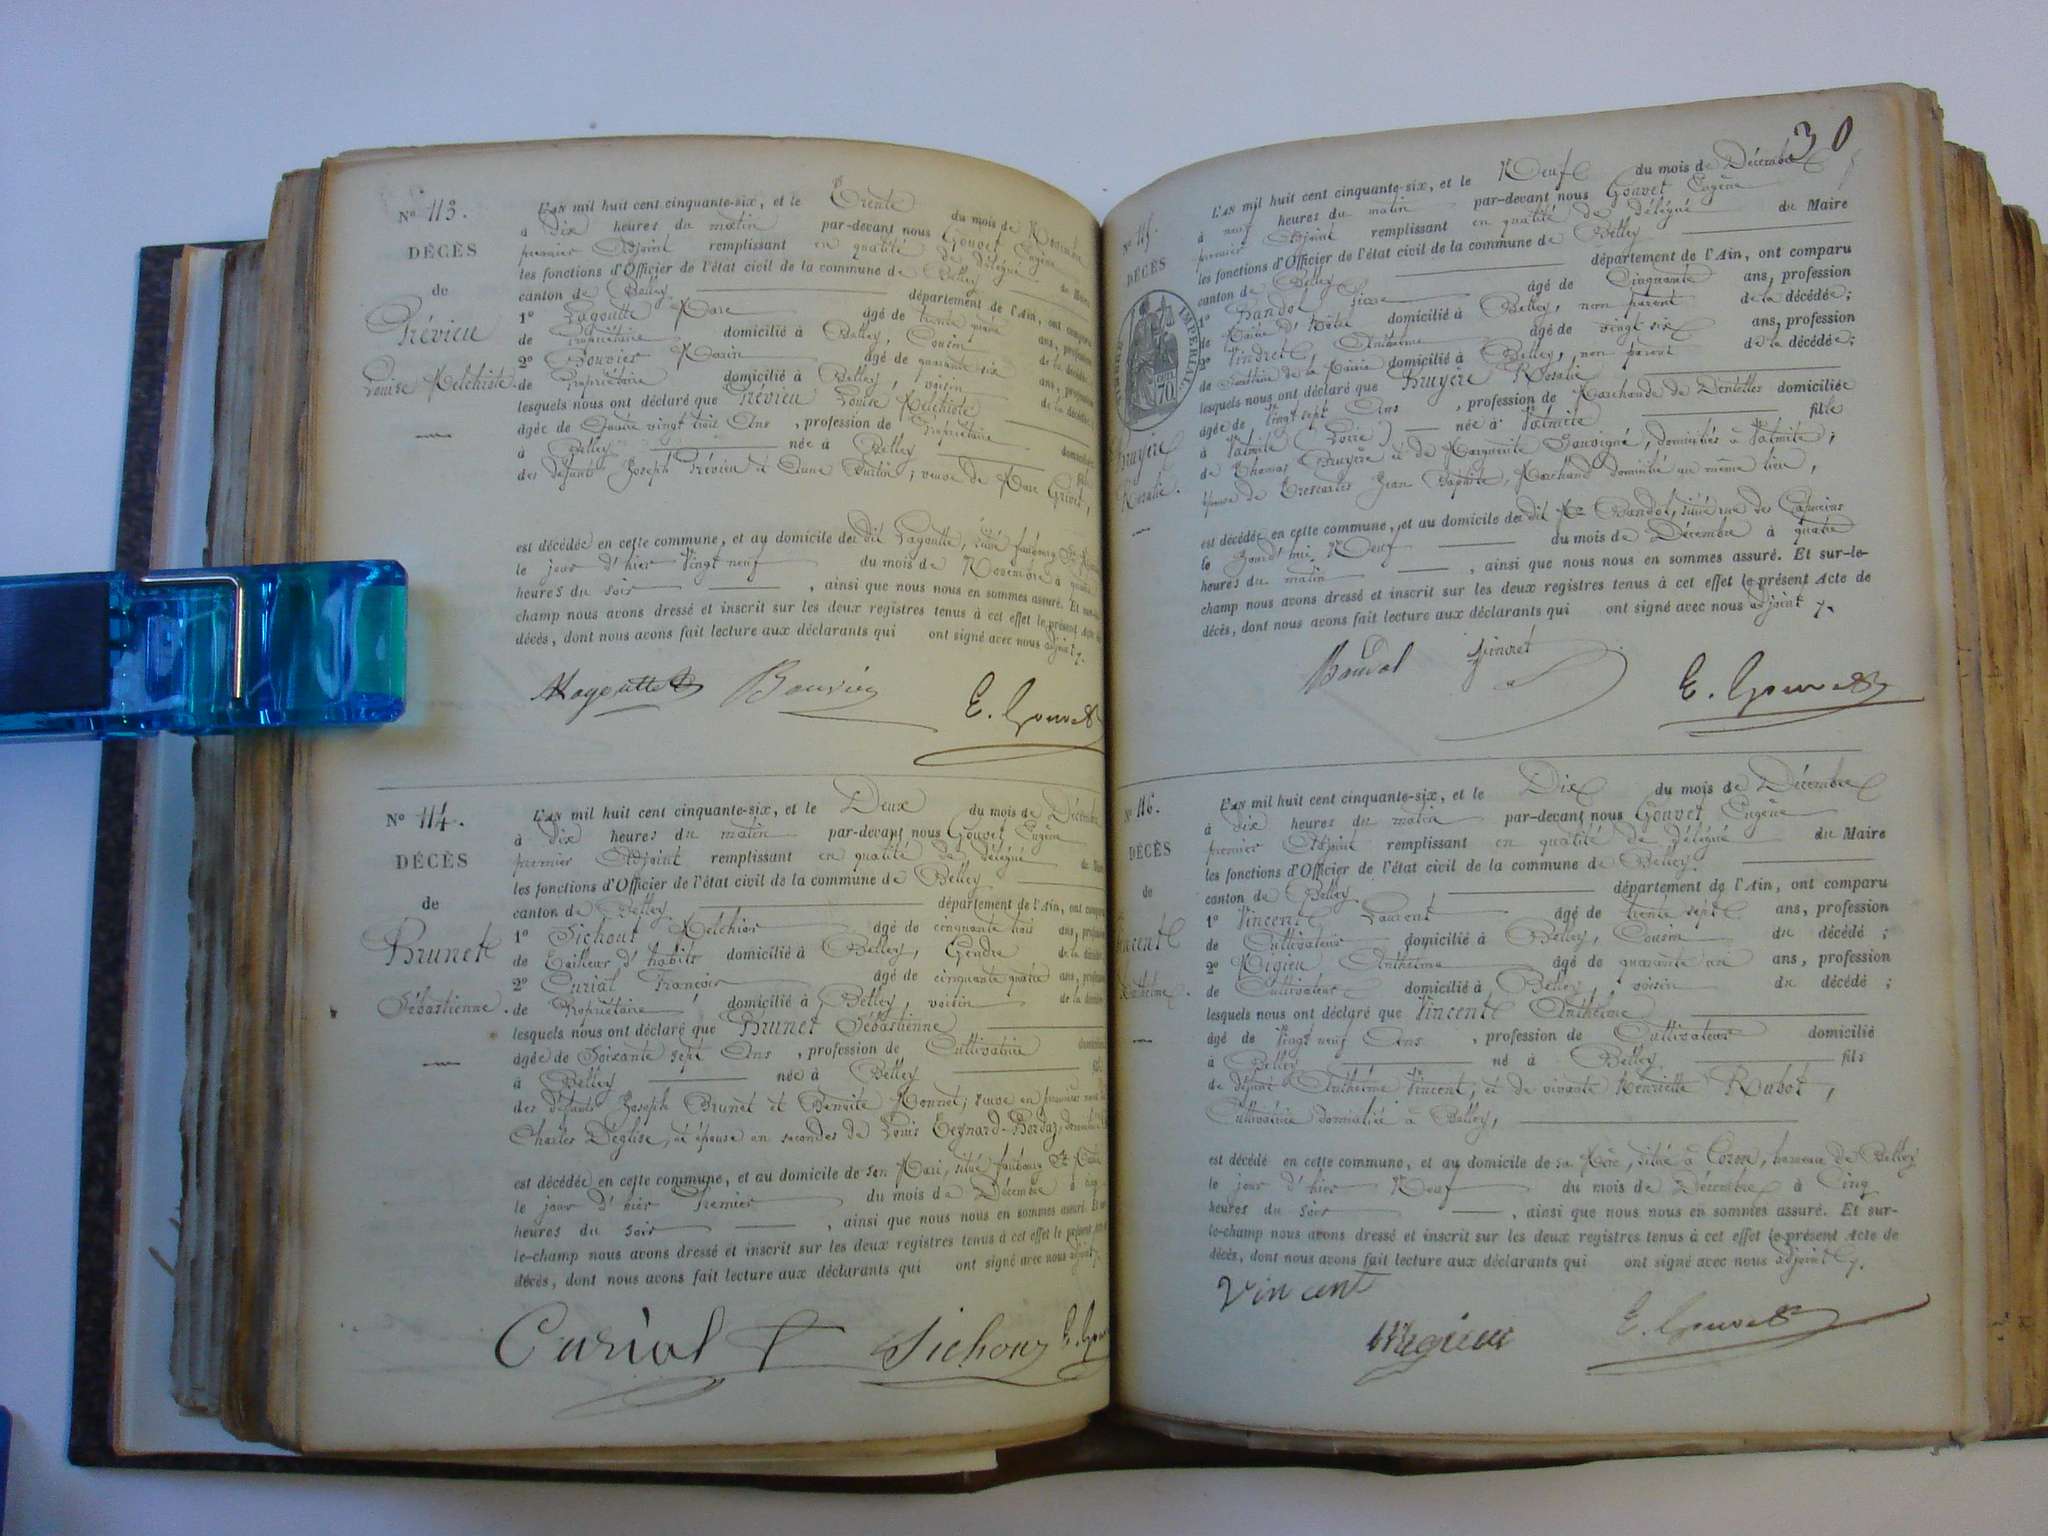 Nº 113.
DÉCÈS
de
Prévieu
Louise Melchiote.
L'AN mil huit cent cinquante-six, et le Trente du mois de Novembre
à dix heures du matin par-devant nous Gouvet Eugène
premier Adjoint remplissant en qualité de délégué du Maire
les fonctions d'Officier de l'état civil de la commune de Belley
canton de Belley département de l'Ain, ont comparu
1º Lagoutte Marc âgé de trente quatre ans, profession
de Propriétaire domicilié à Belley, Cousin de la décédée
2º Bouvier Marin âgé de quarante six ans, profession
de Propriétaire domicilié à Belley, voisin de la décédée
lesquels nous ont déclaré que Prévieu Louise Melchiote
âgée de Quatre vingt trois Ans, profession de Propriétaire domiciliée
à Belley née à Belley
des défunts Joseph Prévieu et Anne Burtin; veuve de Marc Grivet,
est décédée en cette commune, et au domicile du dit Lagoutte, situé faubourg St
le jour d'hier Vingt neuf du mois de Novembre à quatre
heures du soir, ainsi que nous nous en sommes assuré. Et
champ nous avons dressé et inscrit sur les deux registres tenus à cet effet le présent Acte
décès, dont nous avons fait lecture aux déclarants qui ont signé avec nous adjoint.
Bouvier
E. Gouvet
Nº 114.
DÉCÈS
de
Brunet
Sébastienne.
L'AN mil huit cent cinquante-six, et le Deux du mois de Décembre
à dix heures du matin par-devant nous Gouvet Eugène
premier Adjoint remplissant en qualité de délégué du Maire
les fonctions d'Officier de l'état civil de la commune de Belley
canton de Belley département de l'Ain, ont comparu
1º Sichout Melchior âgé de cinquante trois ans, profession
de Tailleur d'habits domicilié à Belley, Gendre de la décédée
2º Curial François âgé de cinquante quatre ans, profession
de Propriétaire domicilié à Belley, voisin de la décédée
lesquels nous ont déclaré que Brunet Sébastienne
âgée de Soixante sept Ans, profession de Cultivatrice domiciliée
à Belley née à Belley
des défunts Joseph Brunet et Benoite Monnet; veuve en premières noces
Charles Déglise, et épouse en secondes de Louis Teynard-Berdaz,
est décédée en cette commune, et au domicile de son Mari, situé faubourg St
le jour d'hier Premier du mois de Décembre à cinq
heures du soir, ainsi que nous nous en sommes assuré. Et sur
le-champ nous avons dressé et inscrit sur les deux registres tenus à cet effet le présent Acte
décès, dont nous avons fait lecture aux déclarants qui ont signé avec nous adjoint.
Curial Sichouz E. Gouv
30
Nº 115.
DÉCÈS
TIMBRE IMPÉRIAL
70
Bruyère
Rosalie.
L'AN mil huit cent cinquante-six, et le Neuf du mois de Décembre
à neuf heures du matin par-devant nous Gouvet Eugène
premier Adjoint remplissant en qualité de délégué du Maire
les fonctions d'Officier de l'état civil de la commune de Belley
canton de Belley département de l'Ain, ont comparu
1º Bandol Pierre âgé de Cinquante ans, profession
de Maître d'hôtel domicilié à Belley, non parent de la décédée;
2º Pindret Anthelme âgé de vingt six ans, profession
de Secrétaire de la Mairie domicilié à Belley, non parent de la décédée;
lesquels nous ont déclaré que Bruyère Rosalie
âgée de Vingt sept Ans, profession de Marchande de Dentelles domiciliée
à (Loire) née à fille
de Thomas Bruyère et de Marguerite Sauvigné, domiciliés à
épouse de Trescartes Jean Baptiste, Marchand domicilié au même lieu,
est décédée en cette commune, et au domicile du dit Mr Bandol, situé rue des Capucins
le Jourd'hui Neuf du mois de Décembre à quatre
heures du matin, ainsi que nous nous en sommes assuré. Et sur-le-
champ nous avons dressé et inscrit sur les deux registres tenus à cet effet le présent Acte de
décès, dont nous avons fait lecture aux déclarants qui ont signé avec nous adjoint.
Bandol Pindret
E. Gouvet
Nº 116.
DÉCÈS
de
Vincent
Anthelme.
L'AN mil huit cent cinquante-six, et le Dix du mois de Décembre
à dix heures du matin par-devant nous Gouvet Eugène
premier Adjoint remplissant en qualité de délégué du Maire
les fonctions d'Officier de l'état civil de la commune de Belley
canton de Belley département de l'Ain, ont comparu
1º Vincent Laurent âgé de trente sept ans, profession
de Cultivateur domicilié à Belley, Cousin du décédé;
2º Migieu Anthelme âgé de quarante ans, profession
de Cultivateur domicilié à Belley, voisin du décédé;
lesquels nous ont déclaré que Vincent Anthelme
âgé de Vingt neuf Ans, profession de Cultivateur domicilié
à Belley né à Belley fils
de défunt Anthelme Vincent, et de vivante Henriette Rubot,
Cultivatrice domiciliée à Belley,
est décédé en cette commune, et au domicile de sa Mère, situé à Coron, hameau de Belley
le jour d'hier Neuf du mois de Décembre à Cinq
heures du soir, ainsi que nous nous en sommes assuré. Et sur-
le-champ nous avons dressé et inscrit sur les deux registres tenus à cet effet le présent Acte de
décès, dont nous avons fait lecture aux déclarants qui ont signé avec nous adjoint.
Vincent
Migieu
E. Gouvet